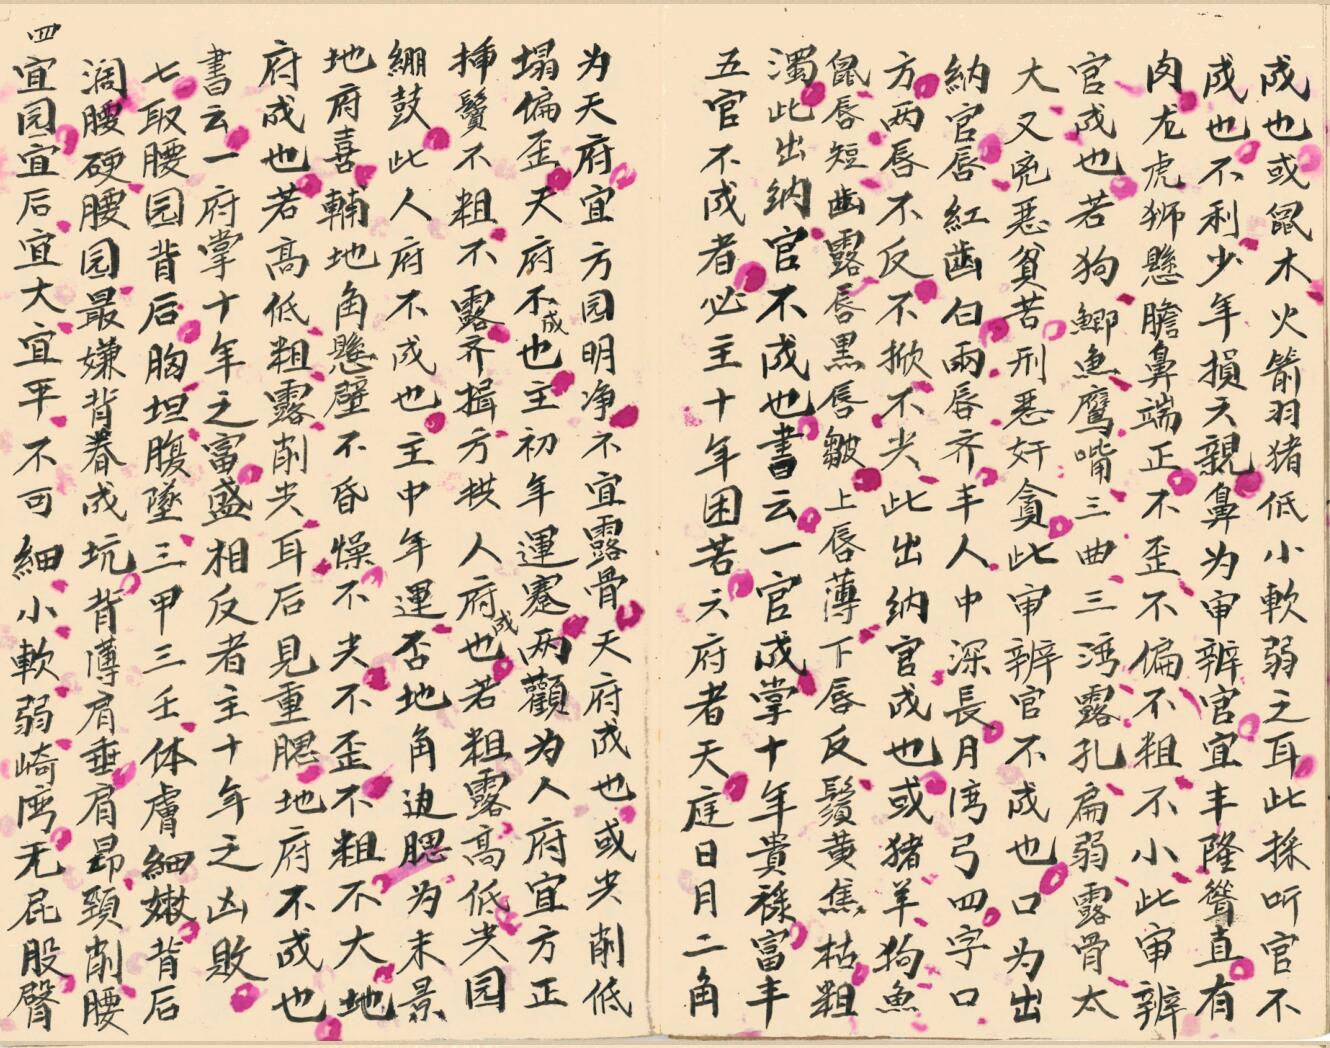 成也或鼠木火箭羽猪低小軟弱之耳此採听官不
成也不利少年損六親鼻为审辨官宜丰隆聳直有
肉尨虎狮懸膽鼻端正不歪不偏不粗不小此审辨
官成也若狗鲫魚鹰嘴三曲三湾露孔扁弱露骨太
大又兇惡貧苦刑惡奸貪此审辨官不成也口为出
納官唇紅齒白兩唇齐丰人中深長月湾弓四字口
方两唇不反不掀不尖此出納官成也或猪羊狗魚
鼠唇短齒露唇黑唇皺上唇薄下唇反鬚黄焦枯粗
濁此出纳官不成也書云一官成掌十年貴禄富丰
五官不成者必主十年困苦六府者天庭日月二角
为天府宜方园明净不宜露骨天府成也或尖削低
塌偏歪天府不成也主初年運蹇两顴为人府宜方正
挿鬓不粗不露齐揖方拱人府成也若粗露高低尖园
綳鼓此人府不成也主中年運否地角边腮为末景
地府喜輔地角懸壁不昏燥不尖不歪不粗不大地
府成也若高低粗露削尖耳后見重腮地府不成也
書云一府掌十年之富盛相反者主十年之凶敗
七取腰园背后胸坦腹墜三甲三壬体膚細嫩背后
濶腰硬腰园最嫌背眷成坑背薄肩垂肩昂頸削腰
四宜园宜后宜大宜平不可細小軟弱崎湾无屁股臀